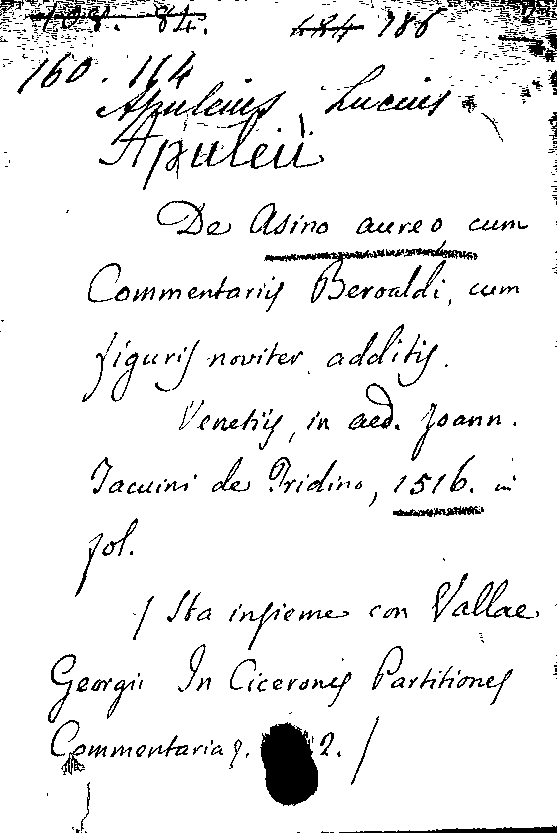 108. 84. 184 186
160. 114
Apuleius, Lucius
Apuleii
De Asino aureo cum
Commentariis Beroaldi, cum
figuris noviter additis.
Venetiis, in aed. Joann.
Tacuini de Tridino, 1516. in
fol.
/ Sta insieme con Vallae
Georgii In Ciceronis Partitiones
Commentaria 2. /